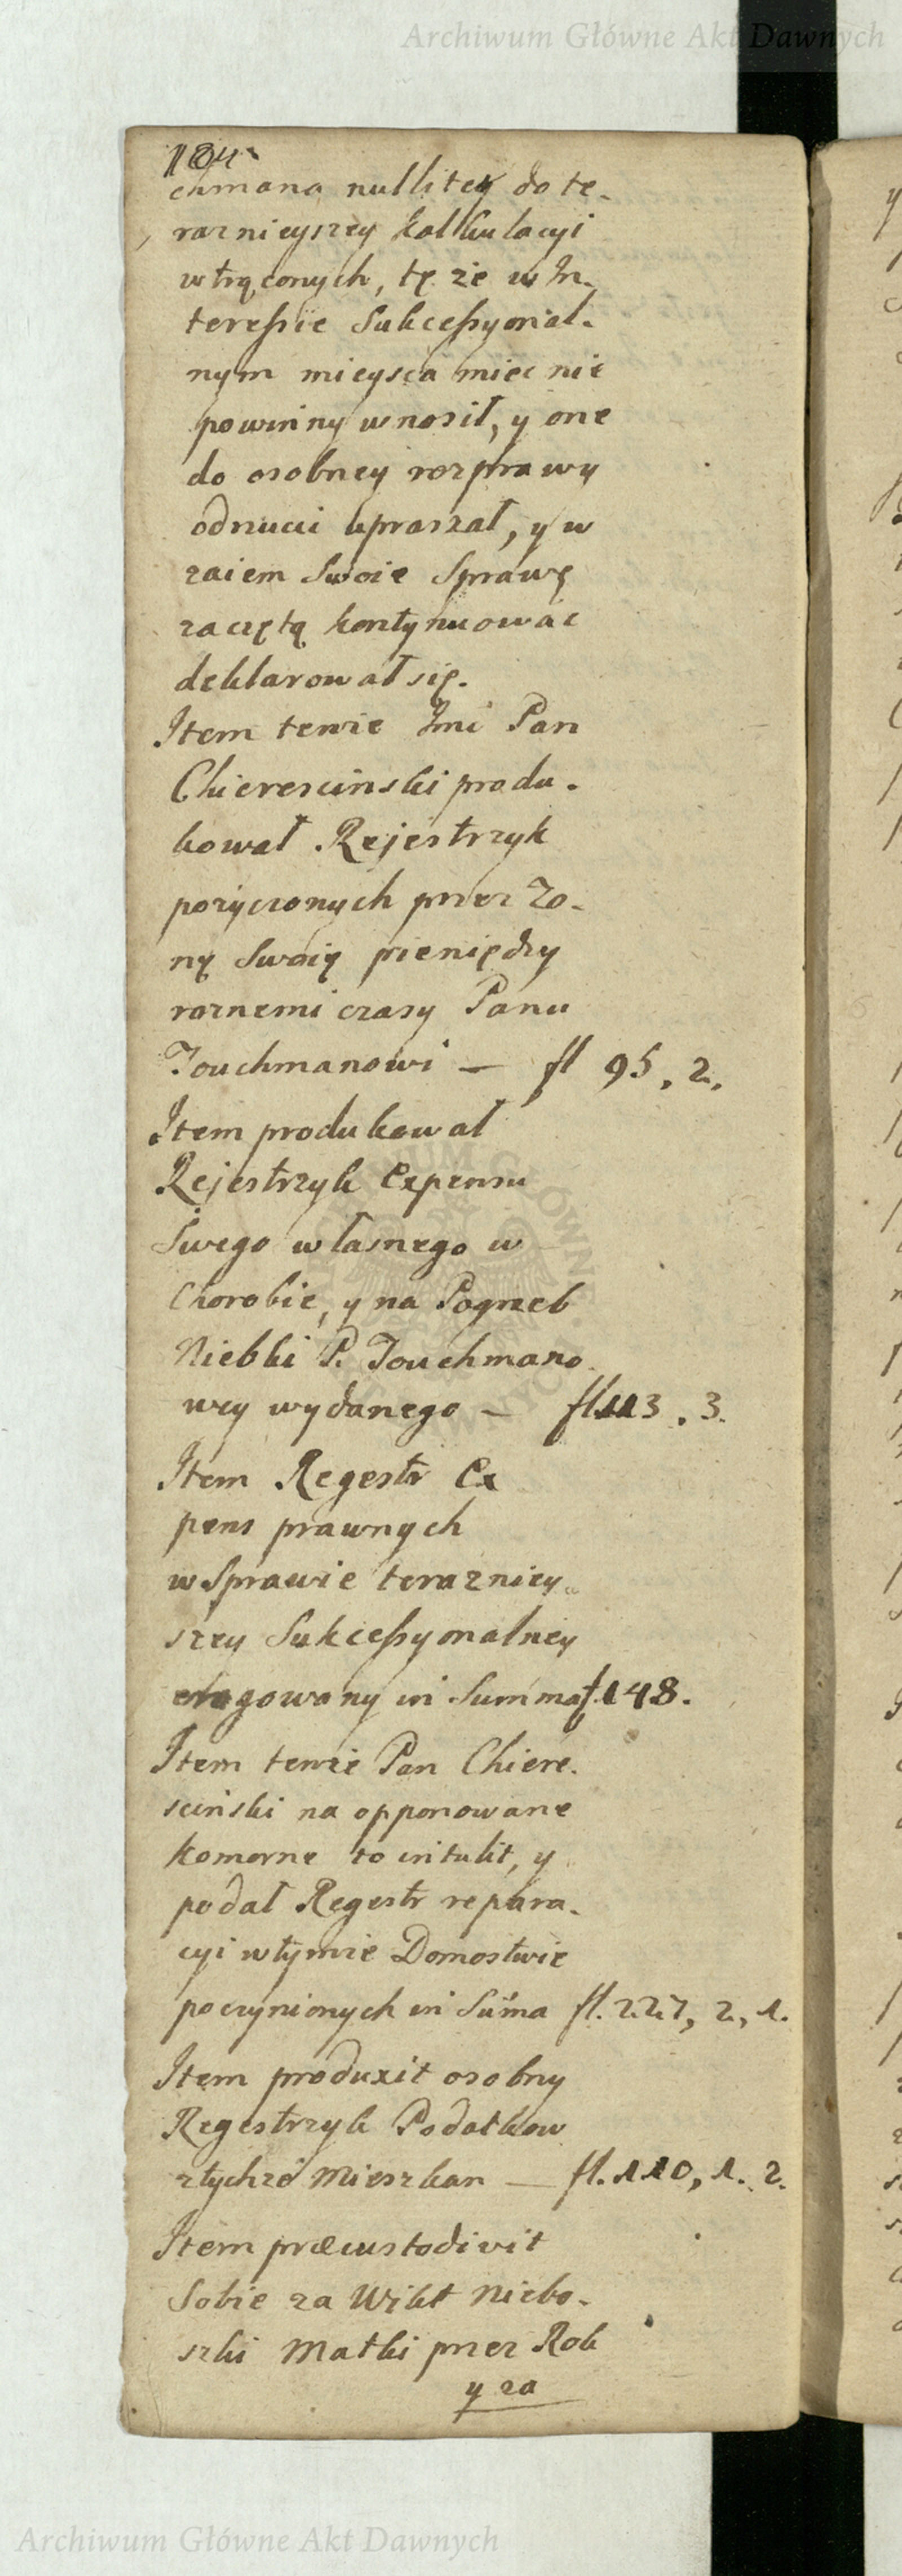 Archiwum Główne Akt Dawnych
184
chmana nullitey do te-
raznieyszey kalkulacyi
wtrąconych, tę że w In-
teressie Sukcessyonal-
nym mieysca miec nie
powinny wnosił, y one
do osobney rozprawy
odrzucić upraszał, y w
zaiem Swoie Sprawę
zaczętą kontynuowac
deklarował się.
Item tenże Jmć Pan
Chierescinski produ-
kował Rejestrzyk
pożyczonych przez Żo-
nę Swoię pieniędzy
roznemi czasy Panu
Touchmanowi — fl 95, 2,
Item produkował
Rejestrzyk Expensu
Swego własnego w
Chorobie, y na Pogrzeb
Niebki P. Touchmano
wey wydanego — fl. 113, 3.
Item Regestr Ex
pens prawnych
w Sprawie terazniey-
szey Sukcessyonalney
erogowany in Summa f. 148.
Item tenże Pan Chiere-
sciński na opponowane
komorne to intulit, y
podał Regestr repara-
cyi w tymże Domostwie
poczynionych in Suma fl. 227, 2, 1.
Item produxit osobny
Regestrzyk Podatkow
z tychże Mieszkan — fl. 110, 1. 2.
Item præcustodivit
Sobie za Wikt Niebo-
szki Matki przez Rok
y za
Archiwum Główne Akt Dawnych